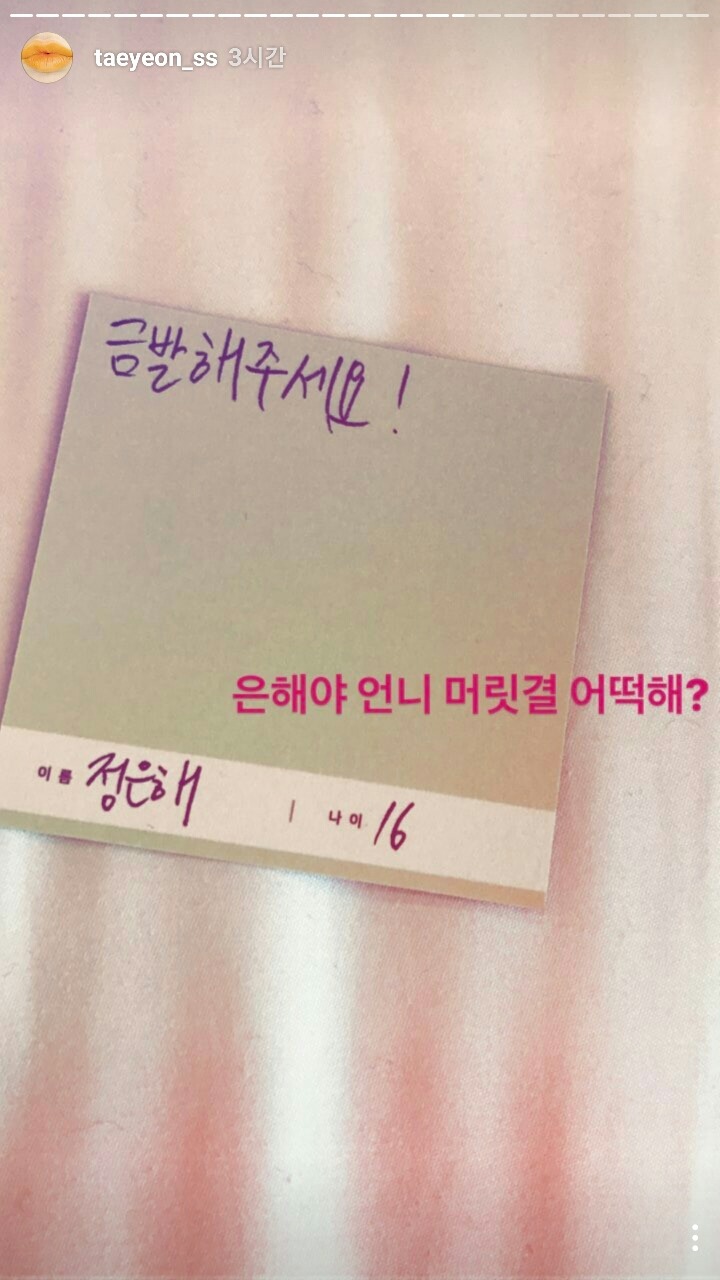 taeyeon_ss 3시간
금발해주세요!
은해야 언니 머릿결 어떡해?
이름 정은해 | 나이 16